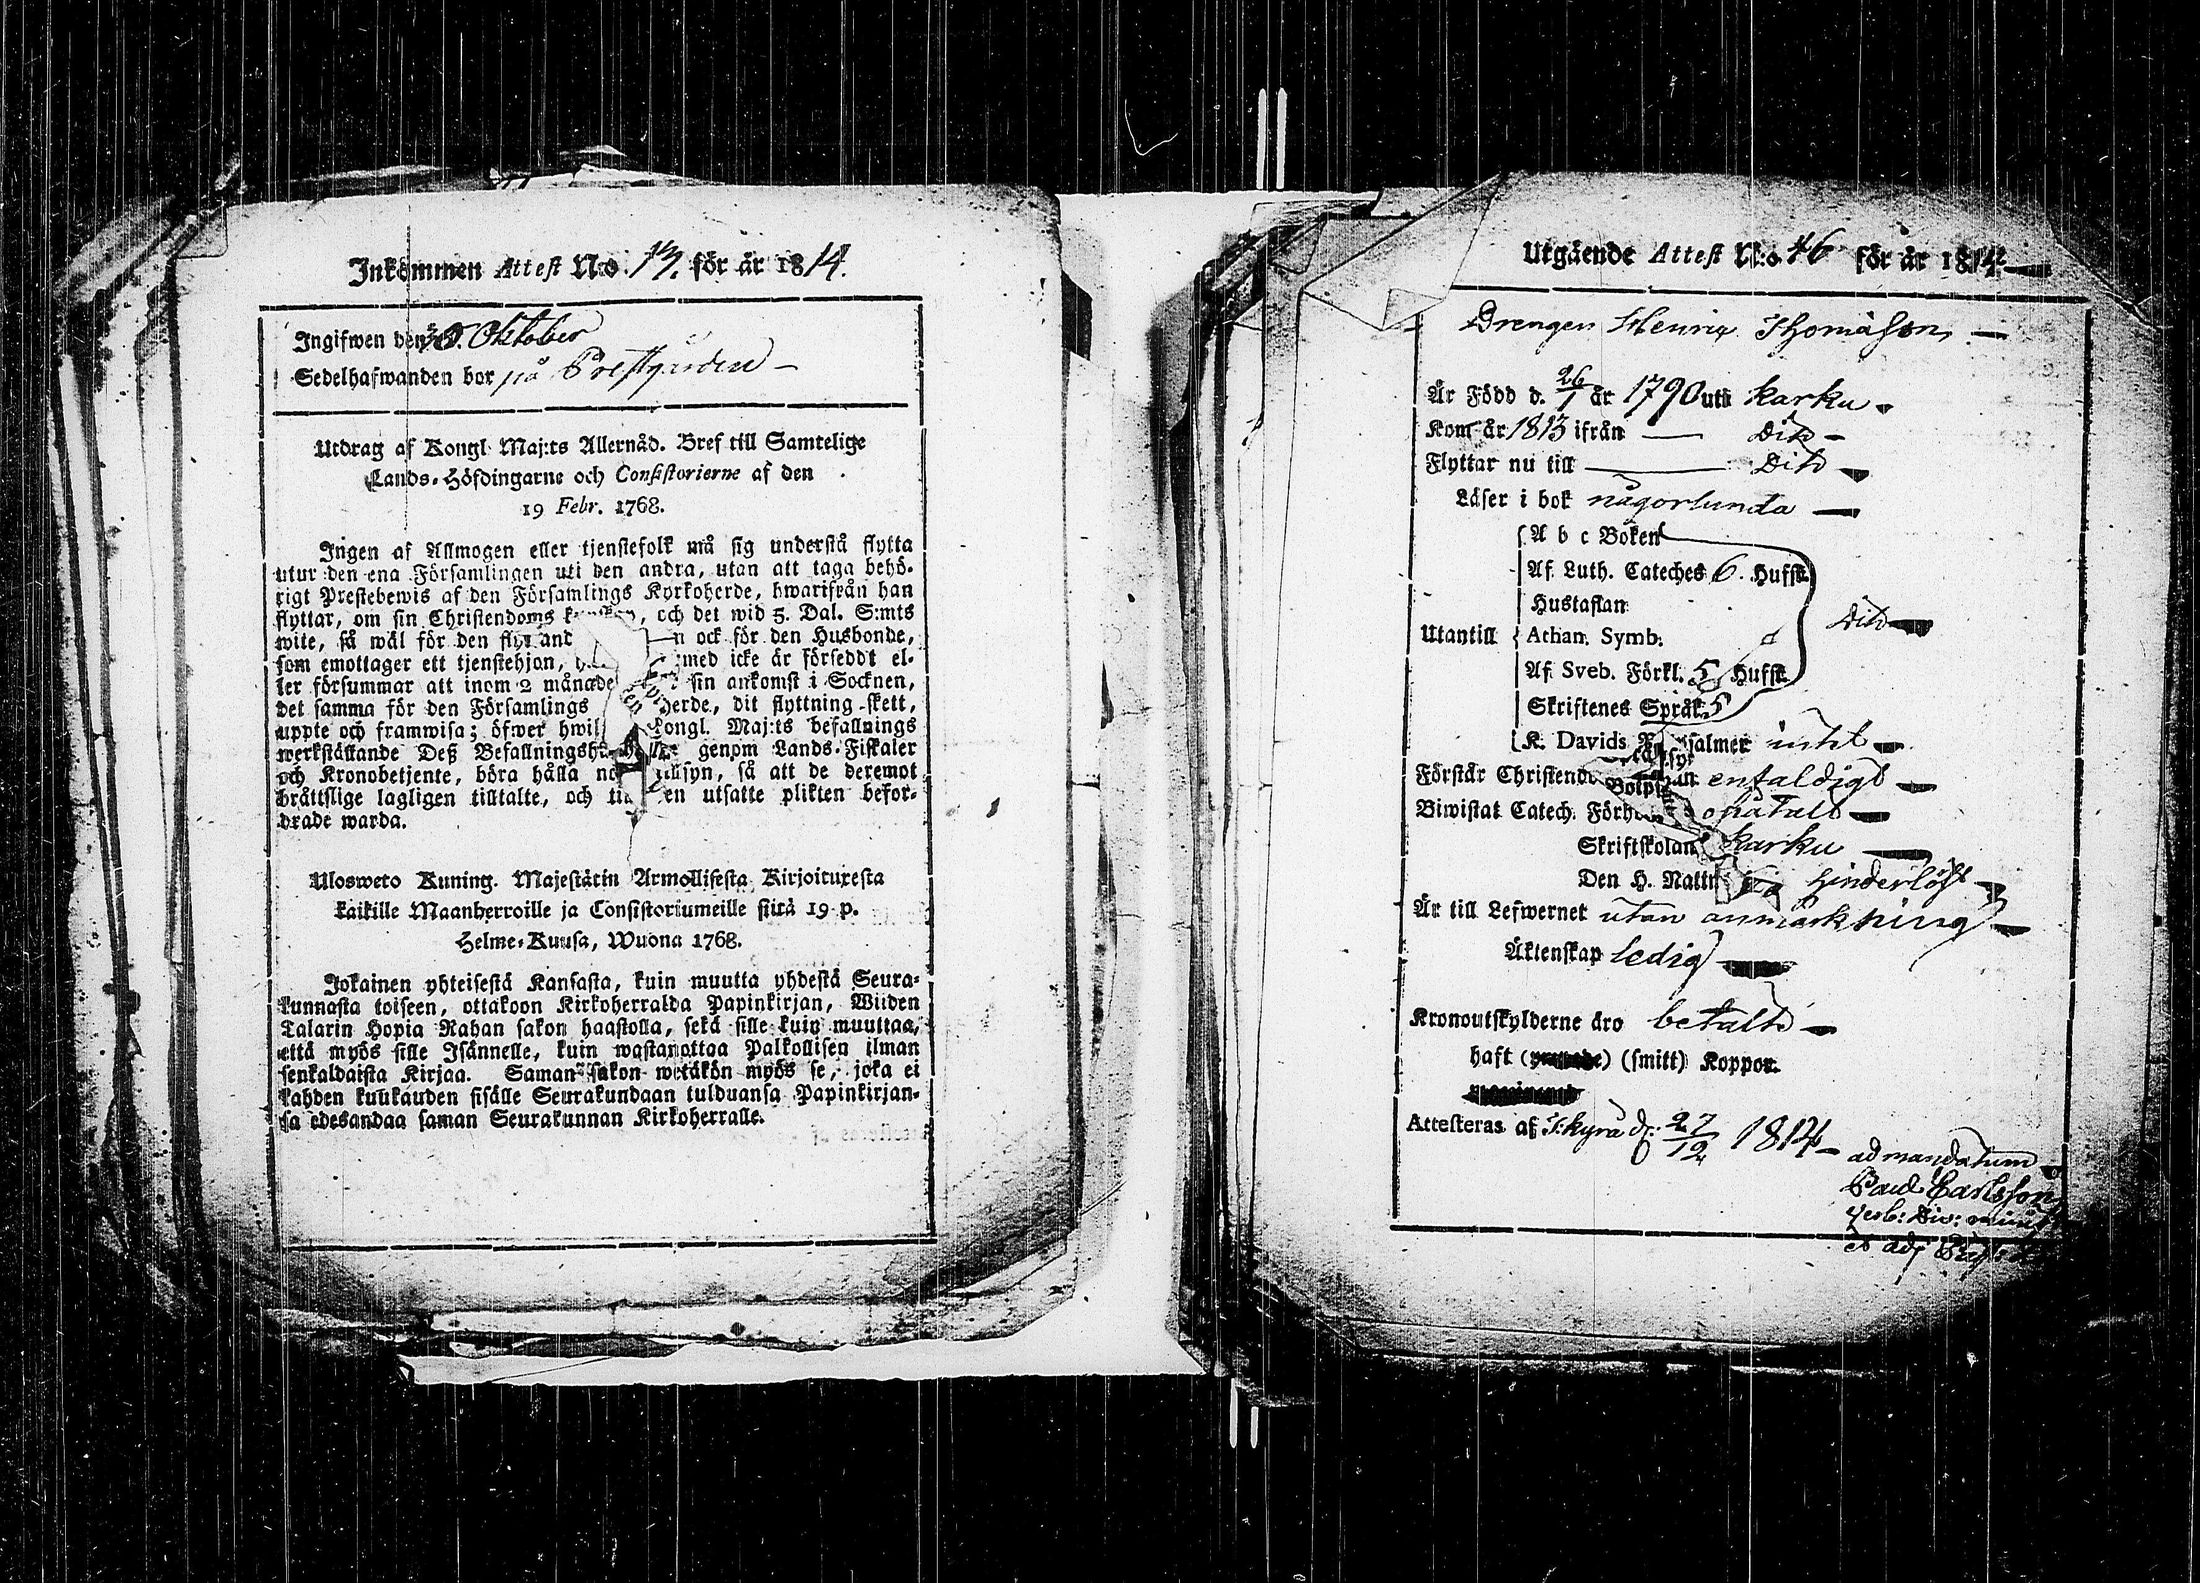 Inkommen Attest No. 13. för år 1814.
Ingifwen den 30. Oktober
Sedelhafwanden bor på Prestgården
Utdrag af Kongl. Maj:ts Allernåd. Bref till Samtelige
Lands-Höfdingarne och Consistorierne af den
19 Febr. 1768.
Ingen af Allmogen eller tjenstefolk må sig understå flytta
utur den ena Församlingen uti den andra, utan att taga behö-
rigt Prestebewis af den Församlings Kyrkoherde, hwarifrån han
flyttar, om sin Christendoms kunskap, och det wid 5. Dal. S:mts
wite, så wäl för den flyttande n ock för den Husbonde,
som emottager ett tjenstehjon, med icke är försedd't el-
ler försummar att inom 2 månader sin ankomst i Socknen,
det samma för den Församlings herde, dit flyttning skett,
uppte och framwisa; öfwer hwilket Kongl. Maj:ts befallnings
werkställande Deß Befallningshafwande genom Lands-Fiskaler
och Kronobetjente, böra hålla noga tillsyn, så att de deremot
bråttslige lagligen tilltalte, och till den utsatte plikten befor-
drade warda.
Ulosweto Kuning. Majestätin Armollisesta Kirjoituxesta
kaikille Maanherroille ja Consistoriumeille siitä 19 p.
Helme-Kuusa, Wuona 1768.
Jokainen yhteisestä Kansasta, kuin muutta yhdestä Seura-
kunnasta toiseen, ottakoon Kirkoherralda Papinkirjan, Wiiden
Talarin Hopia Rahan sakon haastolla, sekä sille kuin muuttaa,
että myös sille Isännelle, kuin wastanottaa Palkollisen ilman
senkaldaista Kirjaa. Saman sakon wetäkön myös se, joka ei
kahden kuukauden sisälle Seurakundaan tulduansa Papinkirjan-
sa edesandaa saman Seurakunnan Kirkoherralle.
Utgående Attest N:o 46 för år 1814
Drengen Henrix Thomasson
Är Född d. 26/1 år 1790 uti Karku
Kom år 1813 ifrån — Dito
Flyttar nu till — Dito
Läser i bok någorlunda
A b c Boken
Af Luth. Cateches 6. Hufst.
Hustaflan
Utantill Athan. Symb. Dito
Af Sveb. Förkl. 5 Hufst.
Skriftenes Språk 5
K. Davids salmer intet
Förstår Christend enfaldigt
Biwistat Catech. Förh opåtalt
Skriftskolan Karku
Den H. Nattw hinderlöst
Är till Lefwernet utan anmärkning
Äktenskap ledig
Kronoutskylderne äro betalte
haft () (smitt) Koppor.
Attesteras af I:kyrå d: 27/12 1814
ad mandatum
Paul Carlsson
verb: Div: minist
et adj